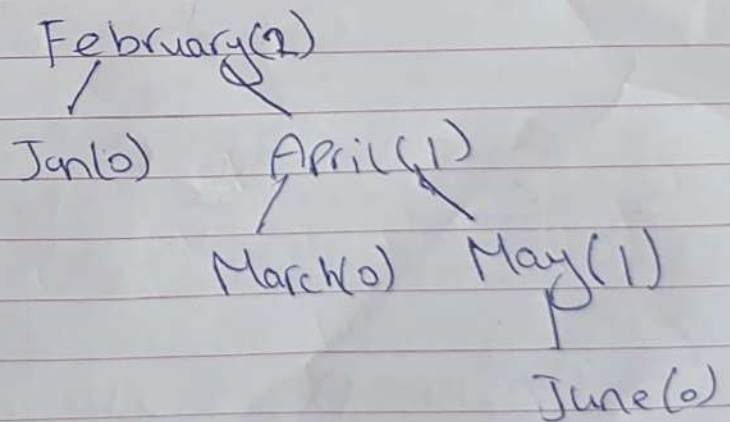 February(2)
Jan(0) April(1)
March(0) May(1)
June(0)